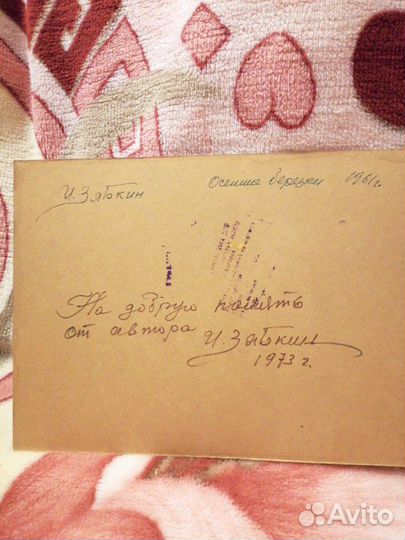 И. Зябкин
Осенние березки 1961г.
На добрую память
от автора И. Зябкин
1973 г.
Avito